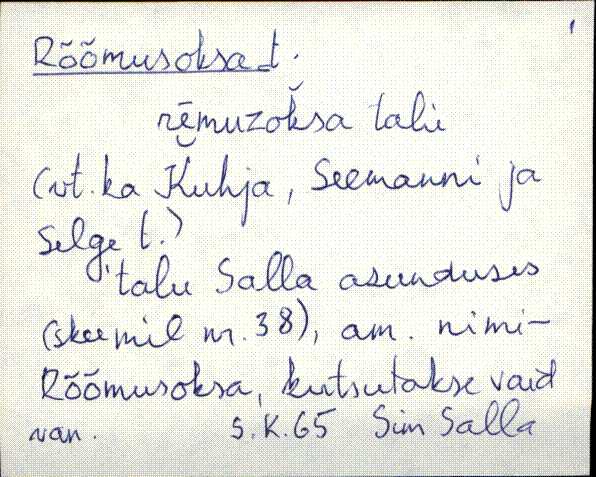 Rõõmusoksa t.
rēmuzoksa talu
(vt. ka Kuhja, Seemanni ja
Selge t.)
talu Salla asunduses
(skeemil nr. 38), am. nimi-
Rõõmusoksa, kutsutakse vaid
van. S.K.65 Sim Salla